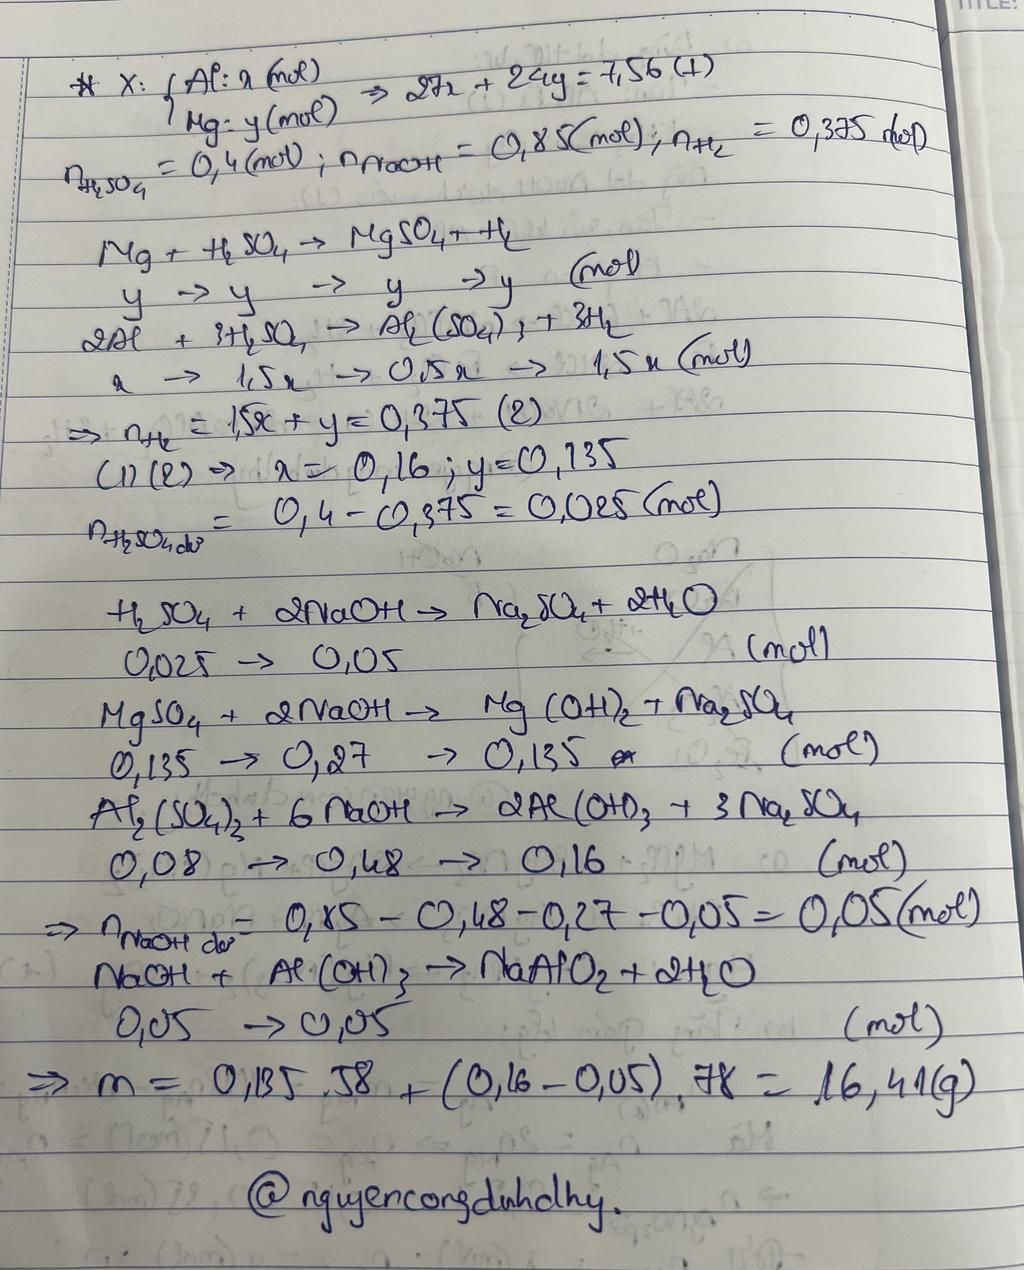 TITLE:
* X: { Al: x (mol)
Mg: y (mol) => 27x + 24y = 7,56 (1)
nH₂SO₄ = 0,4 (mol) ; nNaOH = 0,85 (mol) ; nH₂ = 0,375 mol)
Mg + H₂SO₄ → MgSO₄ + H₂
y → y → y → y (mol
2Al + 3H₂SO₄ → Al₂(SO₄)₃ + 3H₂
x → 1,5x → 0,5x → 1,5x (mol)
=> nH₂ = 1,5x + y = 0,375 (2)
(1)(2) => x = 0,16 ; y = 0,135
nH₂SO₄ dư = 0,4 - 0,375 = 0,025 (mol)
H₂SO₄ + 2NaOH → Na₂SO₄ + 2H₂O
0,025 → 0,05 (mol)
MgSO₄ + 2NaOH → Mg(OH)₂ + Na₂SO₄
0,135 → 0,27 → 0,135 (mol)
Al₂(SO₄)₃ + 6NaOH → 2Al(OH)₃ + 3Na₂SO₄
0,08 → 0,48 → 0,16 (mol)
=> nNaOH dư = 0,85 - 0,48 - 0,27 - 0,05 = 0,05 (mol)
NaOH + Al(OH)₃ → NaAlO₂ + 2H₂O
0,05 → 0,05 (mol)
=> m = 0,135 . 58 + (0,16 - 0,05) . 78 = 16,41 (g)
@nguyencongduhdhy.